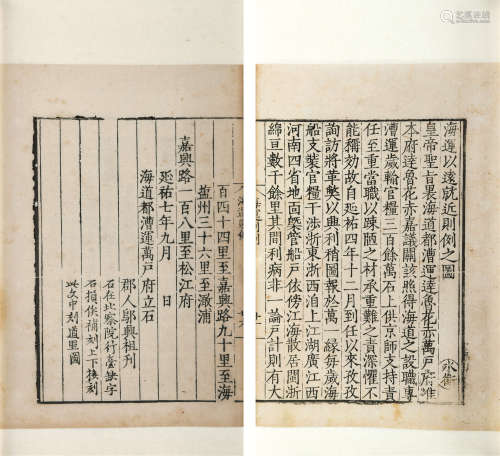 海運以遠就近則例之圖
皇帝聖旨裏海道都漕運達魯花赤萬戶府准
本府達魯花赤嘉議關該照得海道之設職專
漕運歲輸官糧三百餘萬石上供京師支持責
任至重當職以踈蹠之材承重難之責深懼不
能稱効故自延祐四年十二月到任以來孜孜
詢訪將革獘以興利稽圖報於萬一緣每歲海
船支裝官糧干涉浙東浙西泊上江湖廣江西
河南四省地面槩管船戶依傍江海散居閩浙
綿亘數千餘里其間利病非一論戶計則有大
百四十四里至嘉興路九十里至海
鹽州三十六里至澉浦
嘉興路一百八里至松江府
延祐七年九月 日
海道都漕運萬戶府立石
郡人鄔興祖刊
石在北察院行臺缺字
石損俟補刻上下後刻
此文中刻道里圖